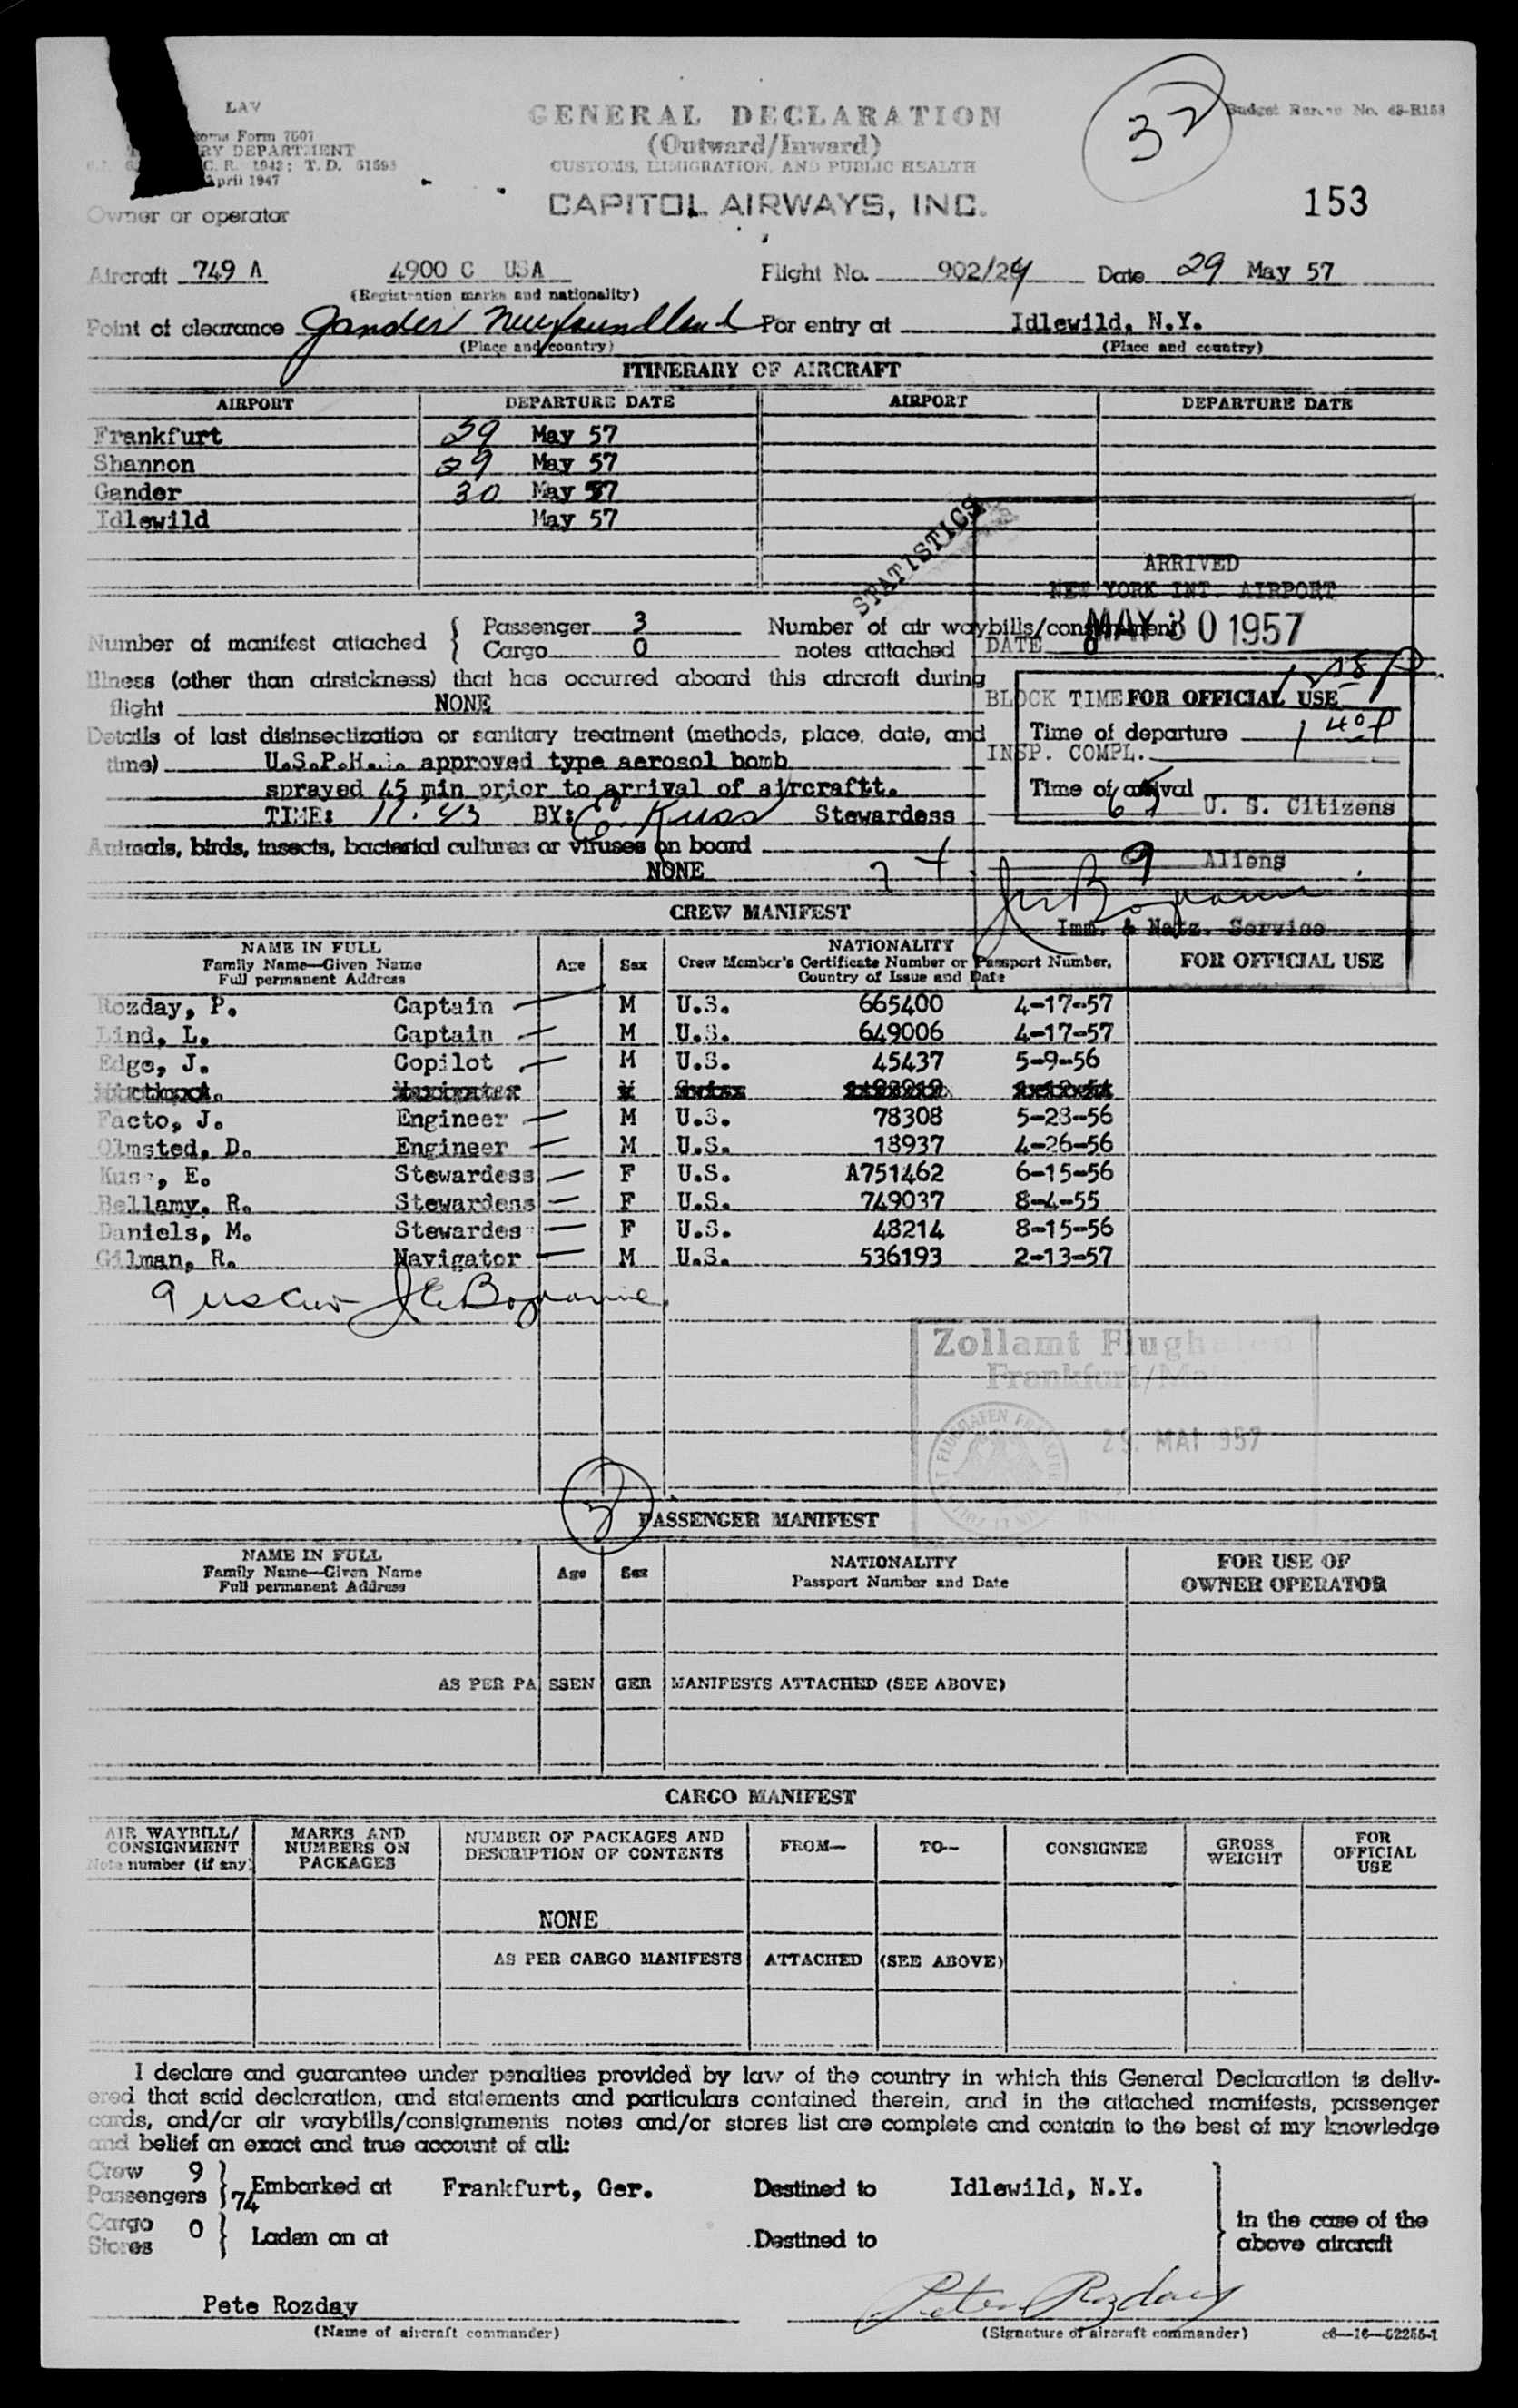 LAV
GENERAL DECLARATION
32
Budget Bureau No. 43-R153
Form 7507
(Outward/Inward)
RY DEPARTMENT
C. R. 1942; T. D. 51595
CUSTOMS, IMMIGRATION, AND PUBLIC HEALTH
April 1947
CAPITOL AIRWAYS, INC.
153
Owner or operator
Aircraft 749 A 4900 C USA Flight No. 902/24 Date 29 May 57
(Registration marks and nationality)
Point of clearance Gander Newfoundland For entry at Idlewild, N.Y.
(Place and country) (Place and country)
ITINERARY OF AIRCRAFT
AIRPORT DEPARTURE DATE AIRPORT DEPARTURE DATE
Frankfurt 29 May 57
Shannon 29 May 57
Gander 30 May 57
Idlewild May 57
STATISTICS
ARRIVED
NEW YORK INT. AIRPORT
Number of manifest attached { Passenger 3 Number of air waybills/consignment
Cargo 0 notes attached 0
DATE MAY 30 1957
Illness (other than airsickness) that has occurred aboard this aircraft during
flight NONE
BLOCK TIME
FOR OFFICIAL USE
Details of last disinsectization or sanitary treatment (methods, place, date, and
Time of departure 1 40 P
time) U.S.P.H. approved type aerosol bomb
INSP. COMPL.
sprayed 45 min prior to arrival of aircraftt.
Time of arrival
U. S. Citizens
TIME: 11.43 BY: E Kuss Stewardess
Animals, birds, insects, bacterial cultures or viruses on board
9 Aliens
NONE
Imm. & Natz. Service
CREW MANIFEST
NAME IN FULL
Family Name—Given Name
Full permanent Address
Age Sex
NATIONALITY
Crew Member's Certificate Number or Passport Number,
Country of Issue and Date
FOR OFFICIAL USE
Rozday, P. Captain M U.S. 665400 4-17-57
Lind, L. Captain M U.S. 649006 4-17-57
Edge, J. Copilot M U.S. 45437 5-9-56
Facto, J. Engineer M U.S. 78308 5-23-56
Olmsted, D. Engineer M U.S. 18937 4-26-56
Kuss, E. Stewardess F U.S. A751462 6-15-56
Bellamy, R. Stewardess F U.S. 749037 8-4-55
Daniels, M. Stewardess F U.S. 48214 8-15-56
Gilman, R. Navigator M U.S. 536193 2-13-57
9
Zollamt Flughafen
Frankfurt/Main
29. MAI 1957
3
PASSENGER MANIFEST
NAME IN FULL
Family Name—Given Name
Full permanent Address
Age Sex
NATIONALITY
Passport Number and Date
FOR USE OF
OWNER OPERATOR
AS PER PASSENGER MANIFESTS ATTACHED (SEE ABOVE)
CARGO MANIFEST
AIR WAYBILL/
CONSIGNMENT
Note number (if any)
MARKS AND
NUMBERS ON
PACKAGES
NUMBER OF PACKAGES AND
DESCRIPTION OF CONTENTS
FROM— TO— CONSIGNEE
GROSS
WEIGHT
FOR
OFFICIAL
USE
NONE
AS PER CARGO MANIFESTS ATTACHED (SEE ABOVE)
I declare and guarantee under penalties provided by law of the country in which this General Declaration is deliv-
ered that said declaration, and statements and particulars contained therein, and in the attached manifests, passenger
cards, and/or air waybills/consignments notes and/or stores list are complete and contain to the best of my knowledge
and belief an exact and true account of all:
Crew 9
Passengers } 74 Embarked at Frankfurt, Ger. Destined to Idlewild, N.Y.
Cargo 0
Stores } Laden on at Destined to
} in the case of the
above aircraft
Pete Rozday Peter Rozday
(Name of aircraft commander) (Signature of aircraft commander) c6—16—52255-1